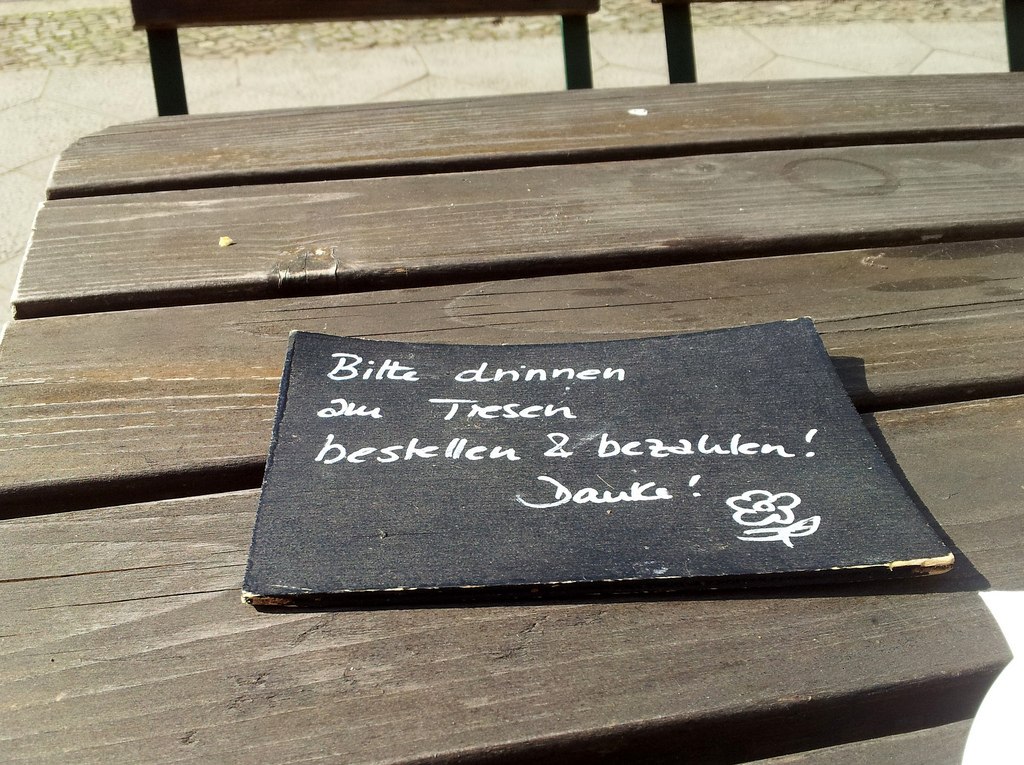 Bitte drinnen
am Tresen
bestellen & bezahlen!
Danke!